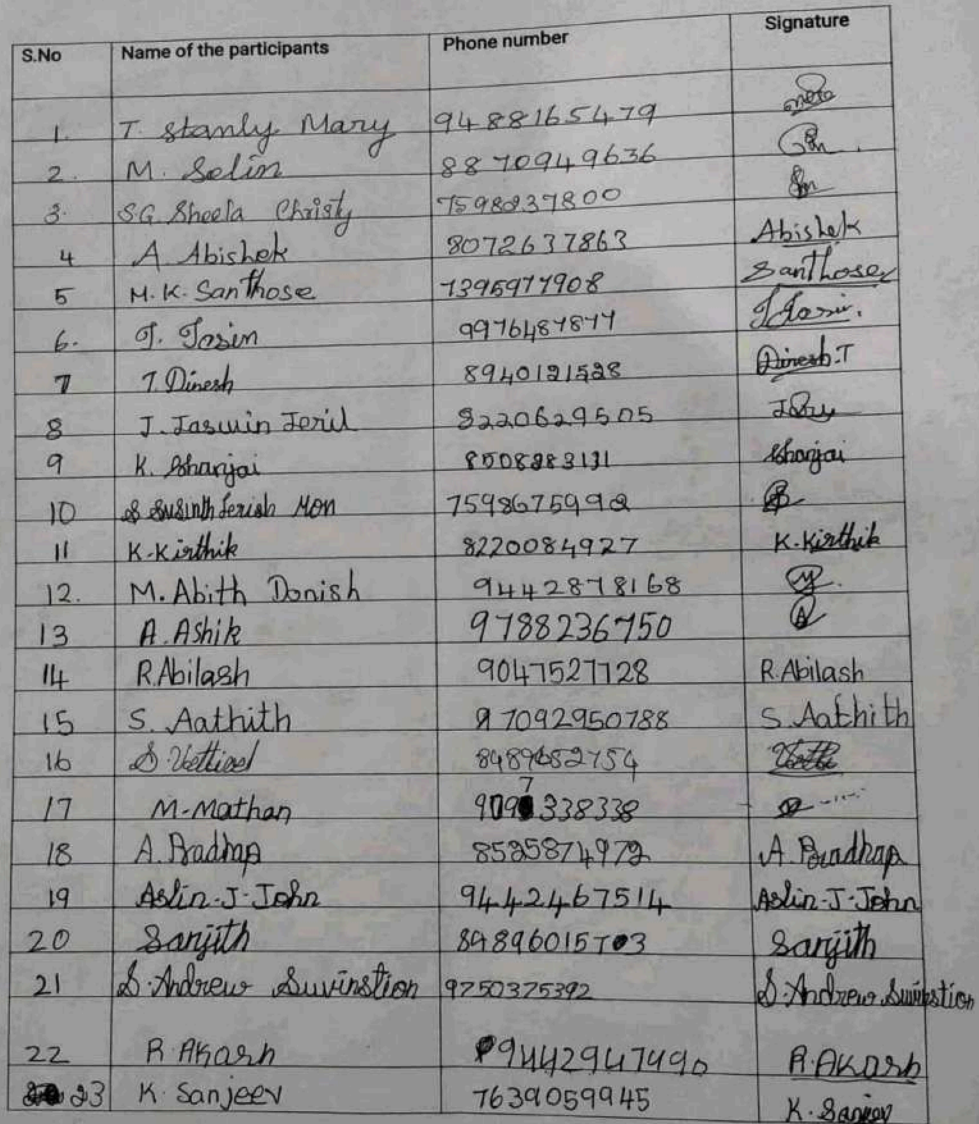 S.No Name of the participants Phone number Signature
1. T. Stanly Mary 9488165479
2. M. Selin 8870949636
3. S.G. Sheela Christy 7598237800
4 A. Abishek 8072637863 Abishek
5 M.K. Santhose 7395977908 Santhose
6. J. Josin 9976487877
7 T. Dinesh 8940121528 Dinesh.T
8 J. Jaswin Jeril 8220629505
9 K. Shanjai 8508283131 Shanjai
10 S Susinth Jerish Mon 7598675992
11 K.Kirthik 8220084927 K.Kirthik
12. M. Abith Donish 9442878168
13 A. Ashik 9788236750
14 R.Abilash 9047527728 R.Abilash
15 S. Aathith 7092950788 S. Aathith
16 S. 8489652754
17 M.Mathan 9097338338
18 A. Pradhap 8525874972 A. Pradhap
19 Aslin-J-John 9442467514 Aslin-J-John
20 Sanjith 8489601573 Sanjith
21 S. Andrew Suvinstion 9750375392 S. Andrew Suvinstion
22 R. AKash 9442947490 R. AKash
23 K. Sanjeev 7639059945 K. Sanjeev